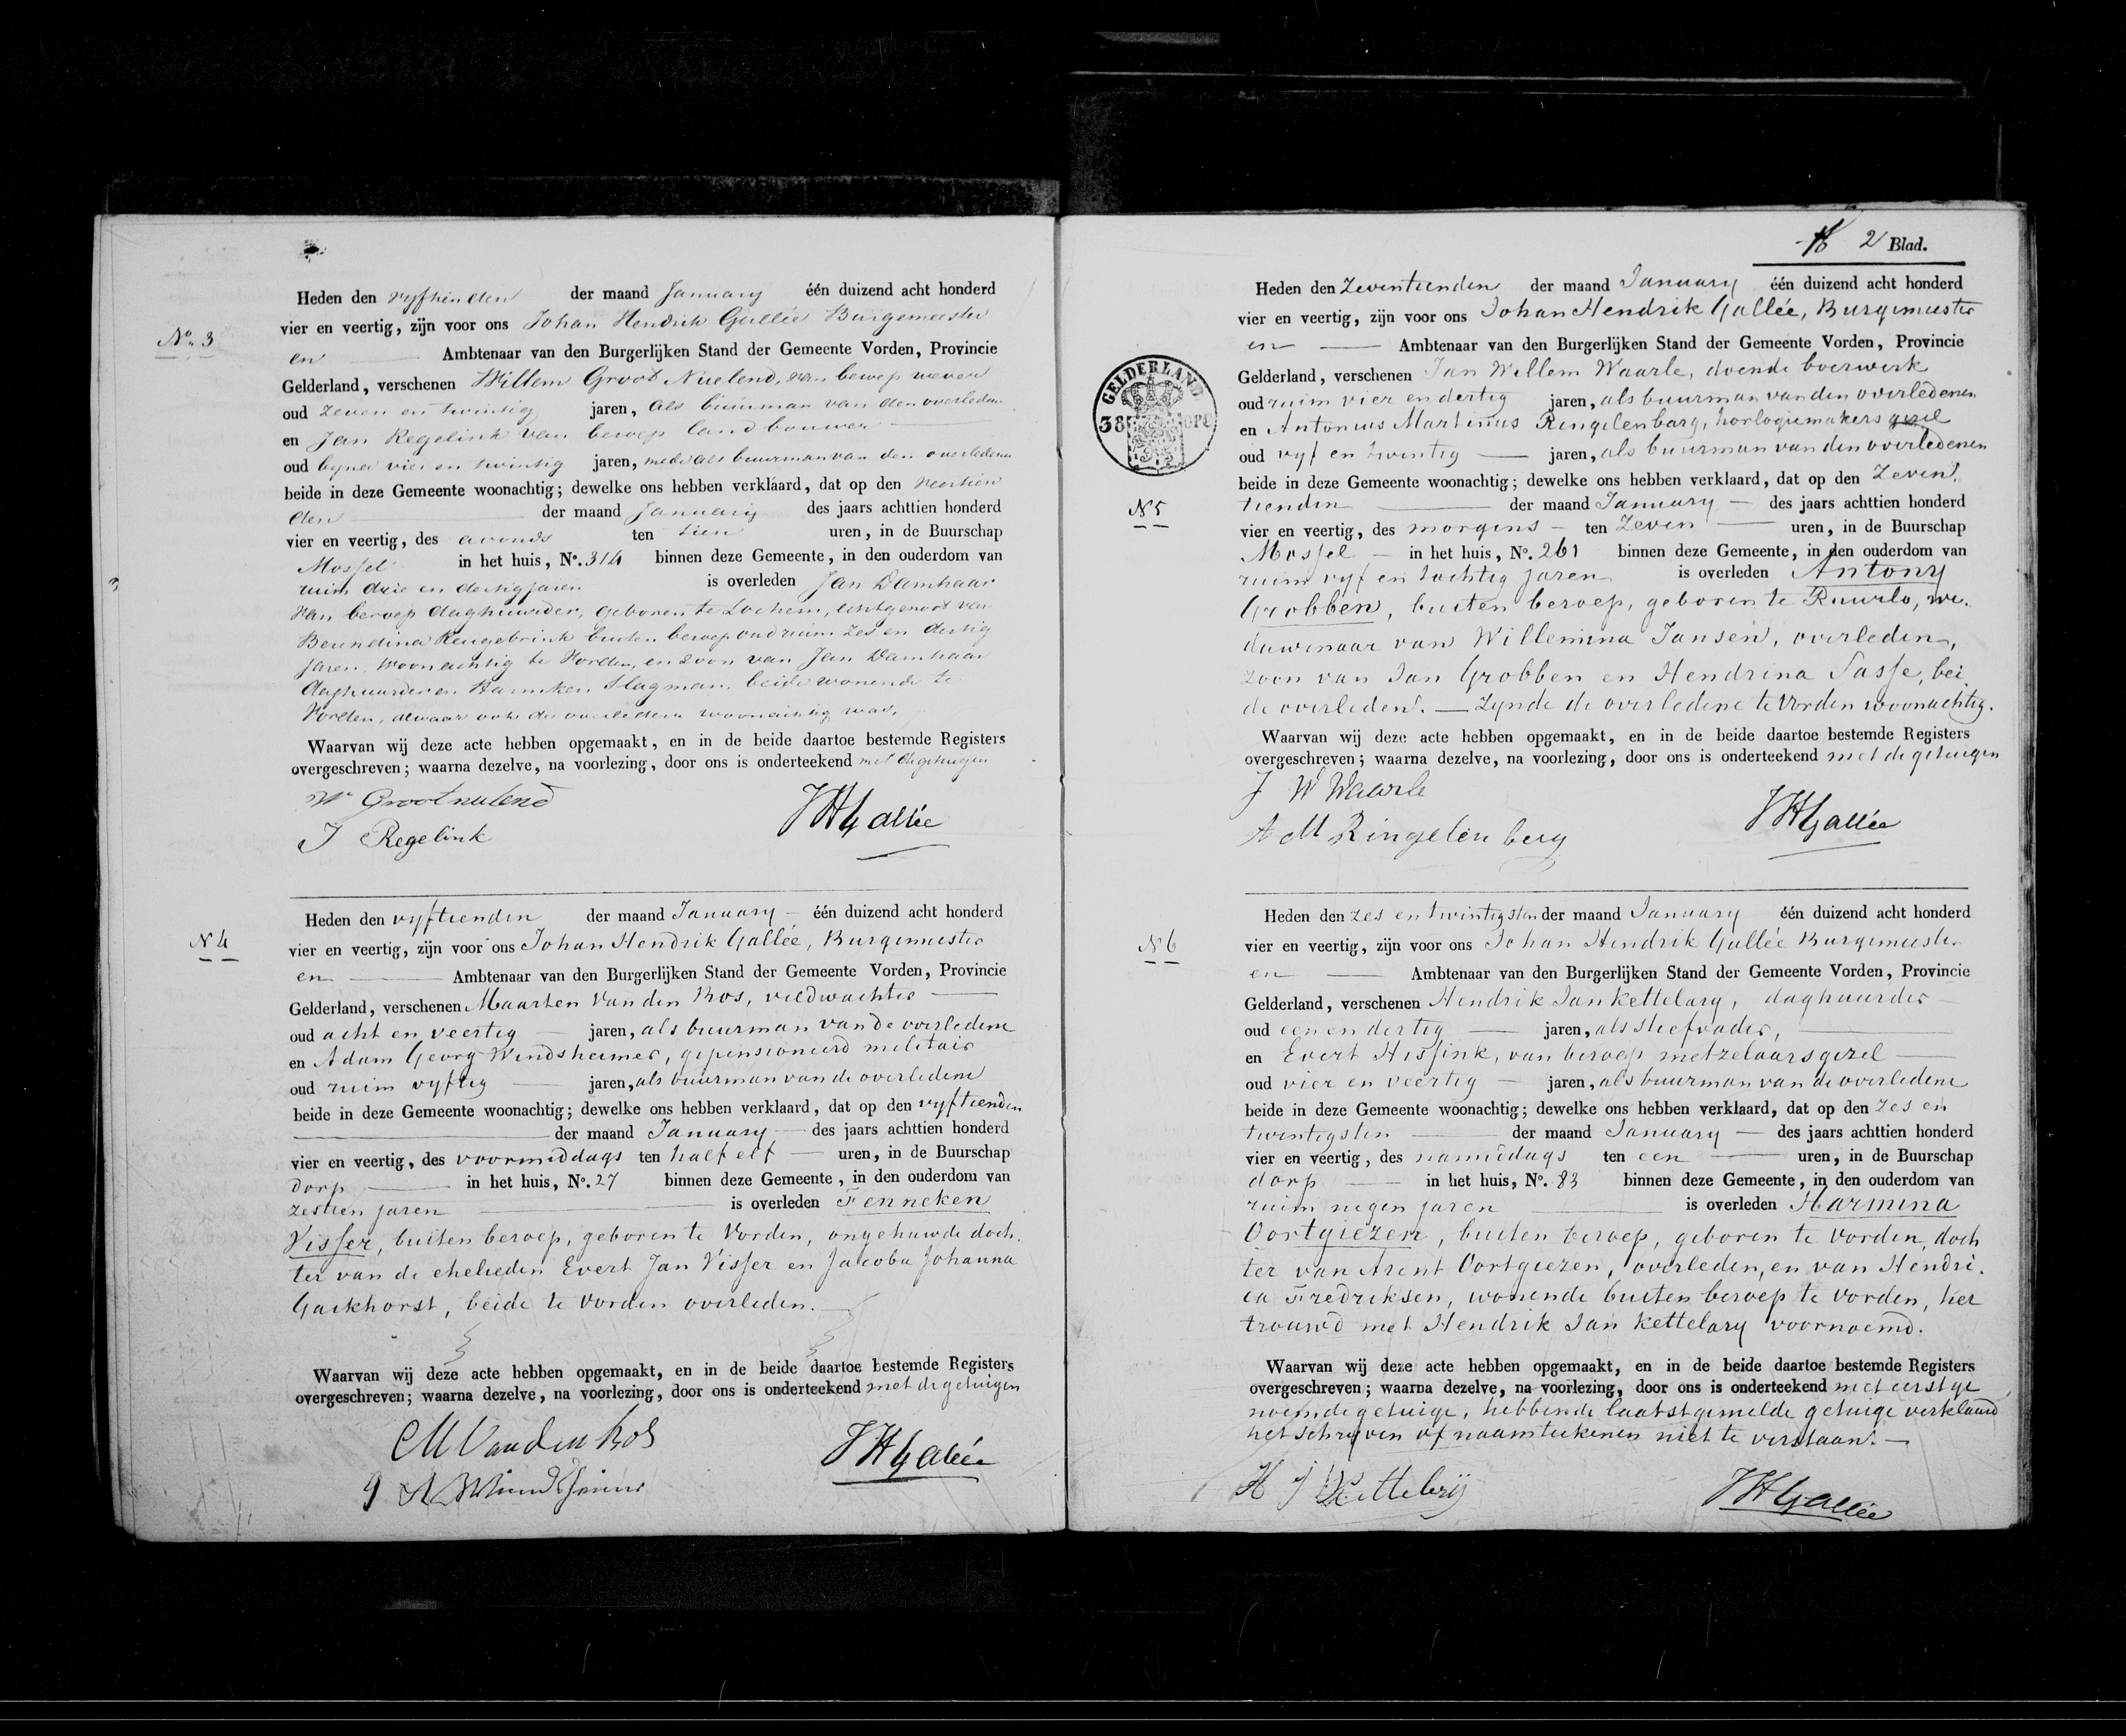 Heden den vyftienden der maand January één duizend acht honderd
vier en veertig, zijn voor ons Johan Hendrik Gallée Burgemeester
No. 3
en Ambtenaar van den Burgerlijken Stand der Gemeente Vorden, Provincie
Gelderland, verschenen Willem Groot Nuelend, van beroep wever
oud zeven en twintig jaren, als buurman van den overleden
en Jan Regelink van beroep landbouwer
oud byna vier en twintig jaren, mede als buurman van den overledene
beide in deze Gemeente woonachtig; dewelke ons hebben verklaard, dat op den veertien
den der maand January des jaars achttien honderd
vier en veertig, des avonds ten tien uren, in de Buurschap
Mossel in het huis, No. 314 binnen deze Gemeente, in den ouderdom van
ruim drie en dertig jaren is overleden Jan Damhaar
van beroep daghuurder, geboren te Lochem, echtgenoot van
Berendina Reugebrink buiten beroep oud ruim zes en dertig
jaren, woonachtig te Vorden, en zoon van Jan Damhaar
daghuurder en Harmken Slagman, beide wonende te
Vorden, alwaar ook de overledene woonachtig was.
Waarvan wij deze acte hebben opgemaakt, en in de beide daartoe bestemde Registers
overgeschreven; waarna dezelve, na voorlezing, door ons is onderteekend met de getuigen
W Grootnulend
J Regelink
JHGallée
Heden den vyftienden der maand January één duizend acht honderd
N 4
vier en veertig, zijn voor ons Johan Hendrik Gallée, Burgemeester
en Ambtenaar van den Burgerlijken Stand der Gemeente Vorden, Provincie
Gelderland, verschenen Maarten Van den Bos, veldwachter
oud acht en veertig jaren, als buurman van de overledene
en Adam Georg Windsheimer, gepensioneerd militair
oud ruim vyftig jaren, als buurman van de overledene
beide in deze Gemeente woonachtig; dewelke ons hebben verklaard, dat op den vyftienden
der maand January des jaars achttien honderd
vier en veertig, des voormiddags ten half elf uren, in de Buurschap
dorp in het huis, No. 27 binnen deze Gemeente, in den ouderdom van
zestien jaren is overleden Fenneken
Visser, buiten beroep, geboren te Vorden, ongehuwde doch
ter van de ehelieden Evert Jan Visser en Jacoba Johanna
Gaikhorst, beide te Vorden overleden.
Waarvan wij deze acte hebben opgemaakt, en in de beide daartoe bestemde Registers
overgeschreven; waarna dezelve, na voorlezing, door ons is onderteekend met de getuigen
M Van den Bos
JHGallée
2 Blad.
Heden den Zeventienden der maand January één duizend acht honderd
vier en veertig, zijn voor ons Johan Hendrik Gallée, Burgemeester
en Ambtenaar van den Burgerlijken Stand der Gemeente Vorden, Provincie
Gelderland, verschenen Jan Willem Waarle, doende boerwerk
oud ruim vier en dertig jaren, als buurman van den overledenen
en Antonius Martinus Ringelenbarg, horlogiemakers gezel
oud vyf en twintig jaren, als buurman van den overledenen
beide in deze Gemeente woonachtig; dewelke ons hebben verklaard, dat op den Zeven
N 5
tienden der maand January des jaars achttien honderd
vier en veertig, des morgens ten Zeven uren, in de Buurschap
Mossel in het huis, No. 261 binnen deze Gemeente, in den ouderdom van
ruim vyf en tachtig jaren is overleden Antony
Grobben, buiten beroep, geboren te Ruurlo, we
duwenaar van Willemina Jansen, overleden,
zoon van Jan Grobben en Hendrina Sasse, bei
de overleden. Zynde de overledene te Vorden woonachtig.
Waarvan wij deze acte hebben opgemaakt, en in de beide daartoe bestemde Registers
overgeschreven; waarna dezelve, na voorlezing, door ons is onderteekend met de getuigen
J W Waarle
A M Ringelenberg
JHGallée
GELDERLAND
38
Heden den zes en twintigsten der maand January één duizend acht honderd
N 6
vier en veertig, zijn voor ons Johan Hendrik Gallée Burgemeester
en Ambtenaar van den Burgerlijken Stand der Gemeente Vorden, Provincie
Gelderland, verschenen Hendrik Jan Kettelary, daghuurder
oud een en dertig jaren, als stiefvader,
en Evert Hissink, van beroep metzelaarsgezel
oud vier en veertig jaren, als buurman van de overledene
beide in deze Gemeente woonachtig; dewelke ons hebben verklaard, dat op den zes en
twintigsten der maand January des jaars achttien honderd
vier en veertig, des namiddags ten een uren, in de Buurschap
dorp in het huis, No. 83 binnen deze Gemeente, in den ouderdom van
ruim negen jaren is overleden Harmina
Oortgiezen, buiten beroep, geboren te Vorden, doch
ter van Arent Oortgiezen, overleden, en van Hendri
ca Fredriksen, wonende buiten beroep te Vorden, her
trouwd met Hendrik Jan Kettelary voornoemd.
Waarvan wij deze acte hebben opgemaakt, en in de beide daartoe bestemde Registers
overgeschreven; waarna dezelve, na voorlezing, door ons is onderteekend met eerstge
noemde getuige, hebbende laatstgemelde getuige verklaard
het schryven of naamteekenen niet te verstaan.
H J Kettlerij
JHGallée